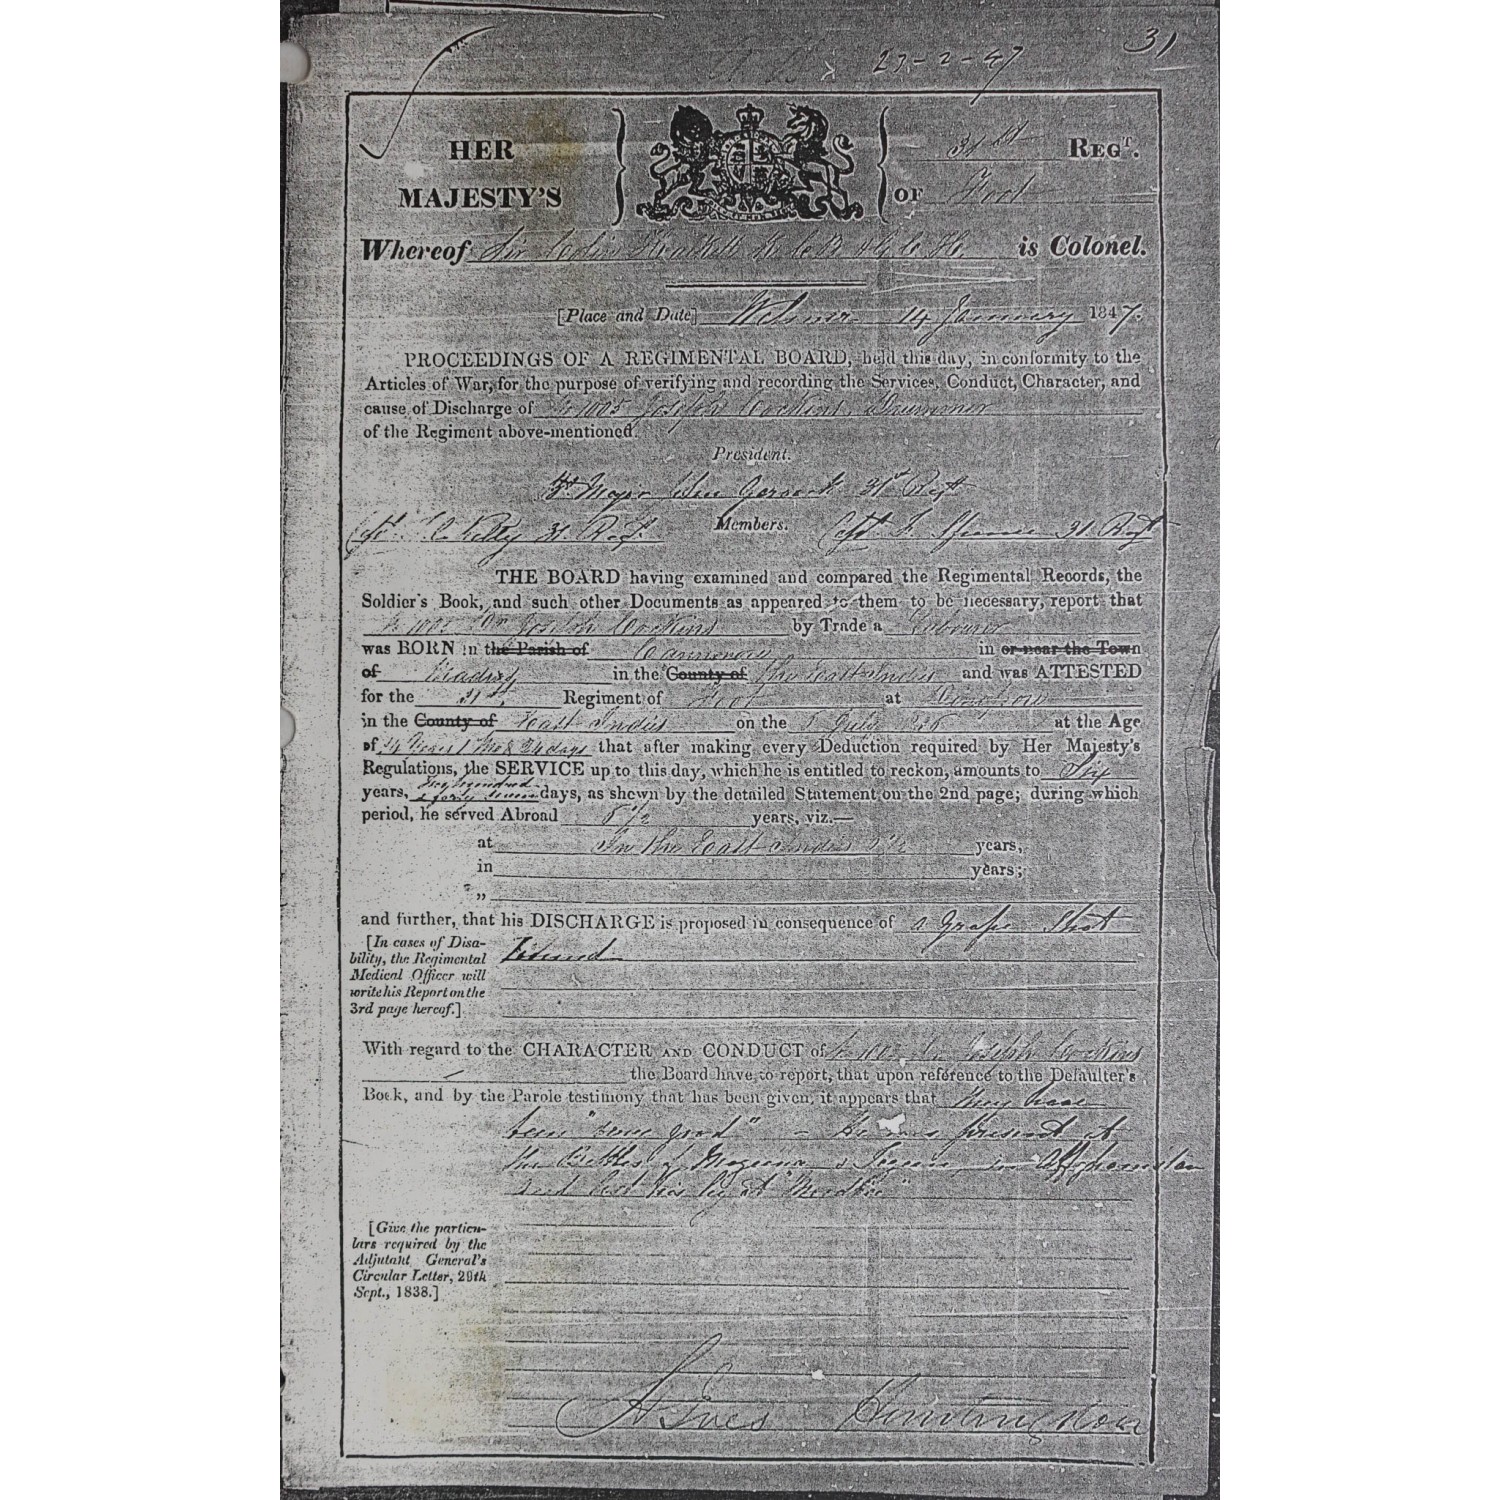 31
27-2-47
HER
MAJESTY'S
31st REGT.
OF Foot
Whereof Sir Colin Halkett K.C.B. & G.C.H. is Colonel.
[Place and Date] 14 January 1847.
PROCEEDINGS OF A REGIMENTAL BOARD, held this day, in conformity to the
Articles of War, for the purpose of verifying and recording the Services, Conduct, Character, and
cause of Discharge of Joseph Cockins Drummer
of the Regiment above-mentioned.
President.
Major 31st Regt
Capt. Kelly 31. Regt.
Members.
Capt 31 Regt
THE BOARD having examined and compared the Regimental Records, the
Soldier's Book, and such other Documents as appeared to them to be necessary, report that
Joseph Cockins by Trade a Labourer
was BORN in the Parish of Cannanore in or near the Town
of Madras in the County of the East Indies and was ATTESTED
for the 31st Regiment of Foot at
in the County of East Indies on the 5 July at the Age
of 14 Years 1 Mo & 24 days that after making every Deduction required by Her Majesty's
Regulations, the SERVICE up to this day, which he is entitled to reckon, amounts to Six
years, days, as shewn by the detailed Statement on the 2nd page; during which
period, he served Abroad 8 1/2 years, viz.—
at In the East Indies 8 1/2 years,
in years;
„
and further, that his DISCHARGE is proposed in consequence of a Grape Shot
Wound
[In cases of Disa-
bility, the Regimental
Medical Officer will
write his Report on the
3rd page hereof.]
With regard to the CHARACTER AND CONDUCT of Joseph Cockins
the Board have to report, that upon reference to the Defaulter's
Book, and by the Parole testimony that has been given, it appears that they have
been "very good" - he was present at
the Battles of Mazeena & Tezeen in Affghanistan
and lost his leg at "Moodkee"
[Give the particu-
lars required by the
Adjutant General's
Circular Letter, 29th
Sept., 1838.]